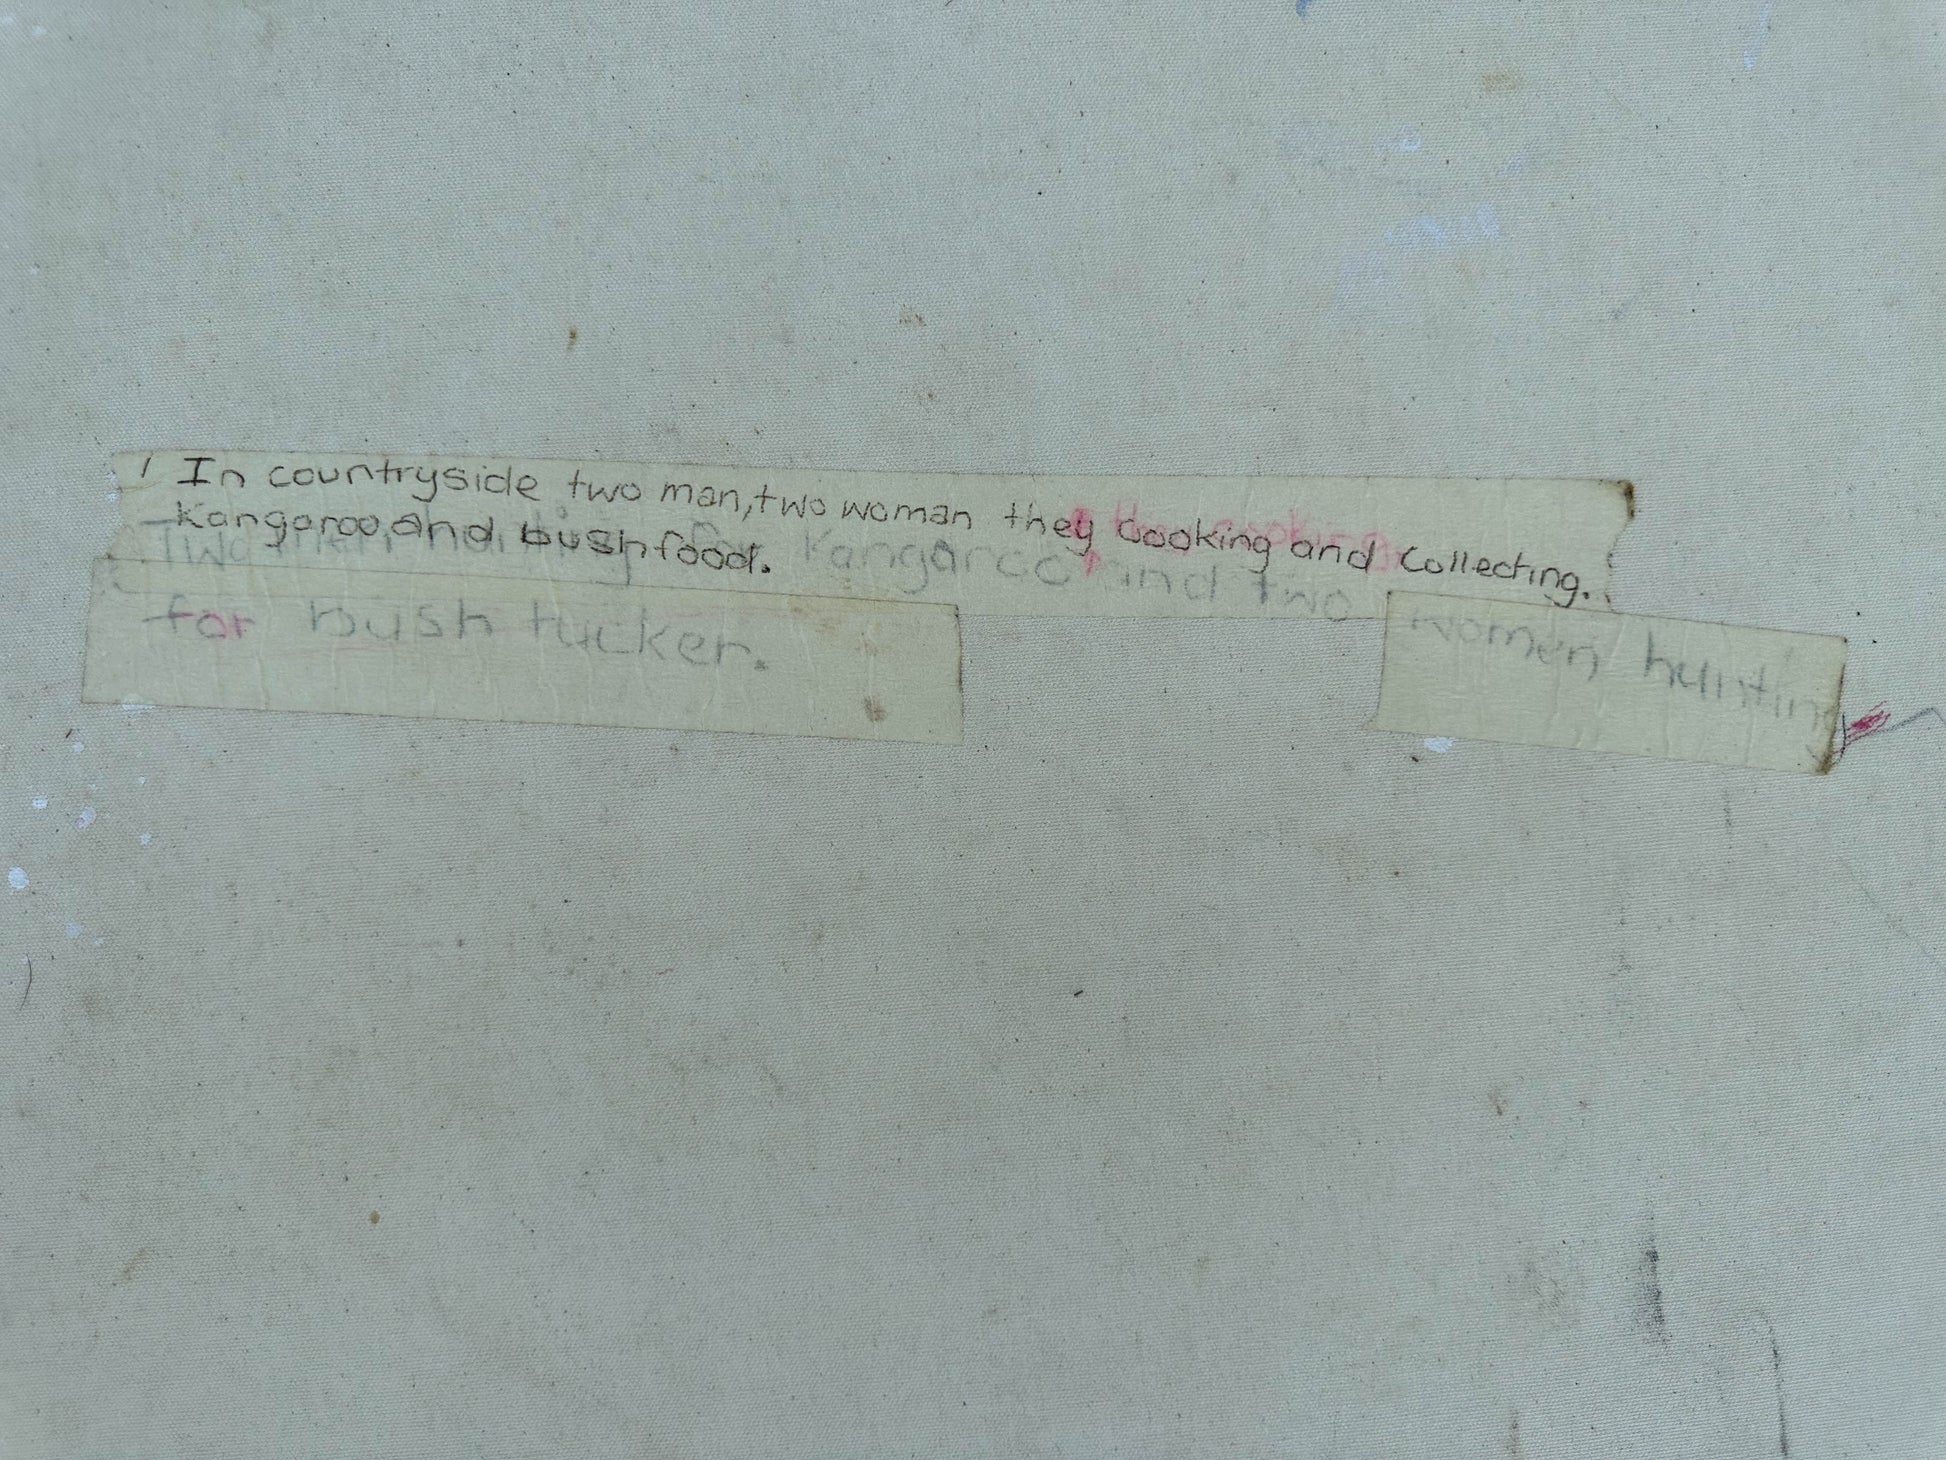 In countryside two man, two woman they cooking and collecting.
Kangaroo and bush food.
Two men hunting for Kangaroo and two women hunting
for bush tucker.